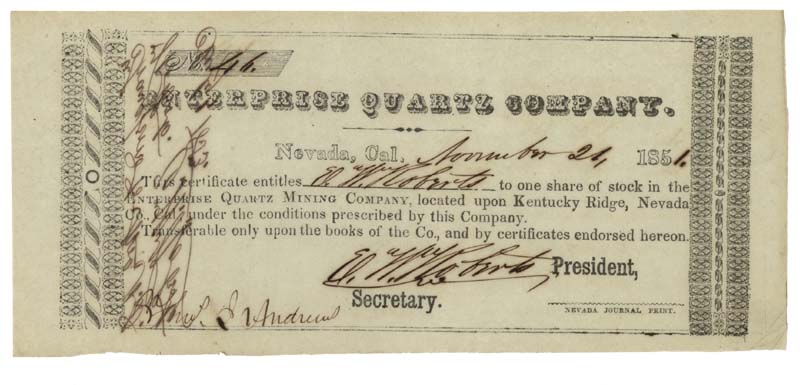 No. 46.
ENTERPRISE QUARTZ COMPANY.
Nevada, Cal, November 21, 1851.
This certificate entitles E. W. Roberts to one share of stock in the
ENTERPRISE QUARTZ MINING COMPANY, located upon Kentucky Ridge, Nevada
Co., Cal. under the conditions prescribed by this Company.
Transferable only upon the books of the Co., and by certificates endorsed hereon.
E. W. Roberts President,
Secretary.
Andrews
NEVADA JOURNAL PRINT.